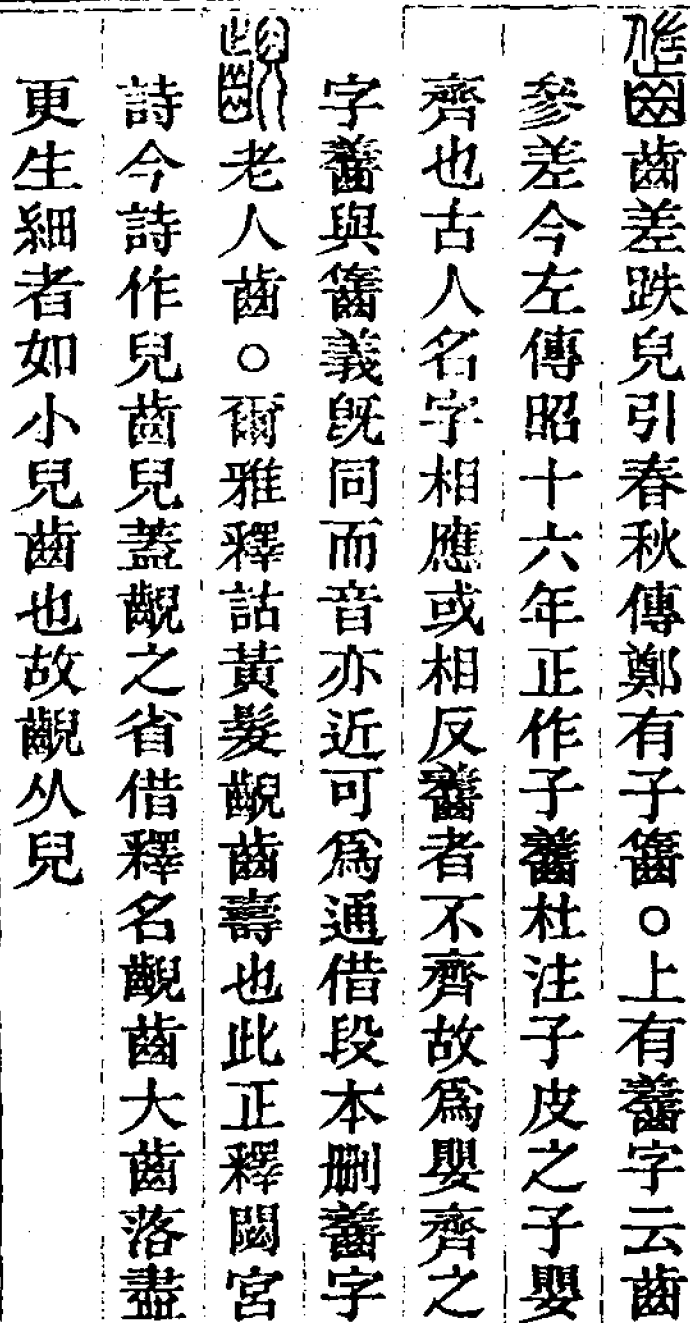 𪘓齒差跌皃引春秋傳鄭有子𪘓○上有齹字云齒
參差今左傳昭十六年正作子齹杜注子皮之子嬰
齊也古人名字相應或相反齹者不齊故爲嬰齊之
字齹與𪘓義旣同而音亦近可爲通借段本刪齹字
齯老人齒○爾雅釋詁黃髮齯齒壽也此正釋閟宮
詩今詩作兒齒兒蓋齯之省借釋名齯齒大齒落盡
更生細者如小兒齒也故齯从兒